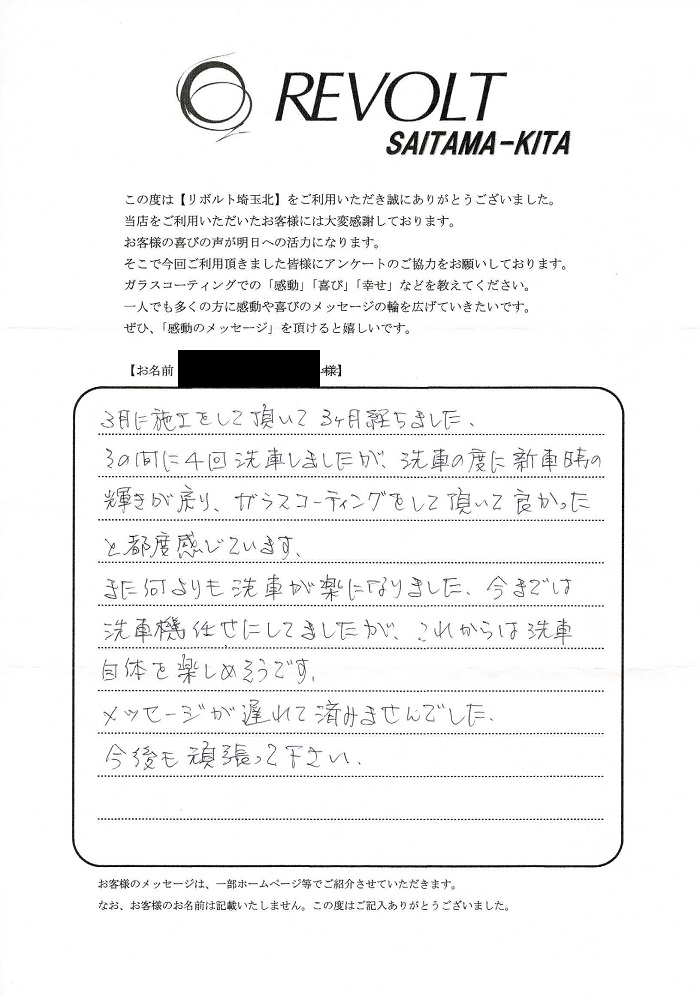 REVOLT
SAITAMA-KITA
この度は【リボルト埼玉北】をご利用いただき誠にありがとうございました。
当店をご利用いただいたお客様には大変感謝しております。
お客様の喜びの声が明日への活力になります。
そこで今回ご利用頂きました皆様にアンケートのご協力をお願いしております。
ガラスコーティングでの「感動」「喜び」「幸せ」などを教えてください。
一人でも多くの方に感動や喜びのメッセージの輪を広げていきたいです。
ぜひ、「感動のメッセージ」を頂けると嬉しいです。
【お名前 様】
3月に施工をして頂いて3ヶ月経ちました、
その間に4回洗車しましたが、洗車の度に新車時の
輝きが戻り、ガラスコーティングをして頂いて良かった
と都度感じています、
また何よりも洗車が楽になりました、今までは
洗車機任せにしてましたが、これからは洗車
自体を楽しめそうです。
メッセージが遅れて済みませんでした、
今後も頑張って下さい、
お客様のメッセージは、一部ホームページ等でご紹介させていただきます。
なお、お客様のお名前は記載いたしません。この度はご記入ありがとうございました。